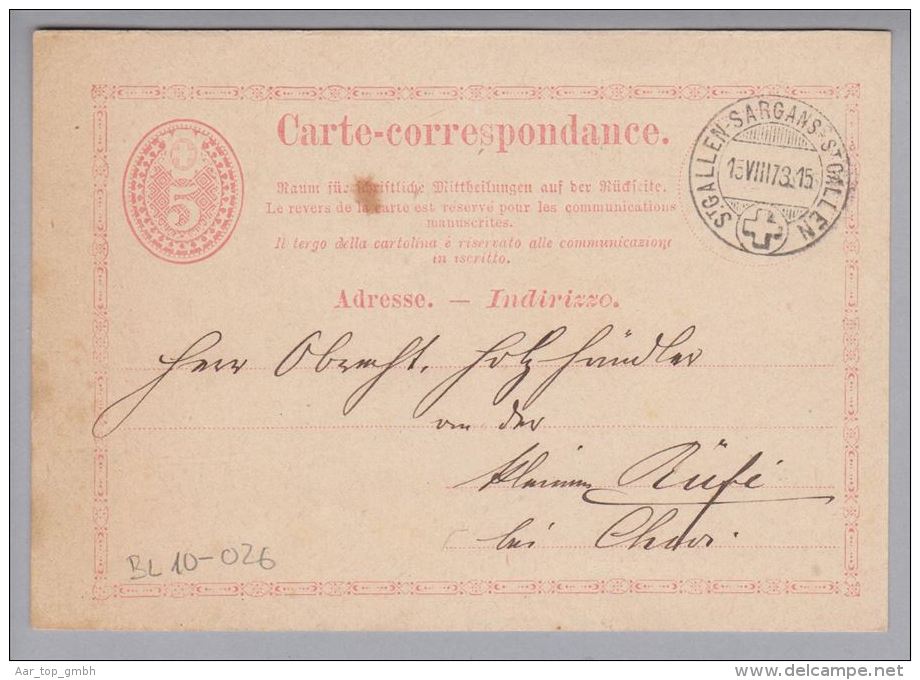 Carte-correspondance.
5
Raum für schriftliche Mittheilungen auf der Rückseite.
Le revers de la carte est réservé pour les communications
manuscrites.
Il tergo della cartolina è riservato alle communicazioni
in iscritto.
ST GALLEN-SARGANS-ST GALLEN
15 VIII 73.15
Adresse. — Indirizzo.
Herr Obrecht, Holzhändler
an der
kleinen Rüfi
bei Chur.
BL 10-026
Aar_top_gmbh
www.delcampe.net